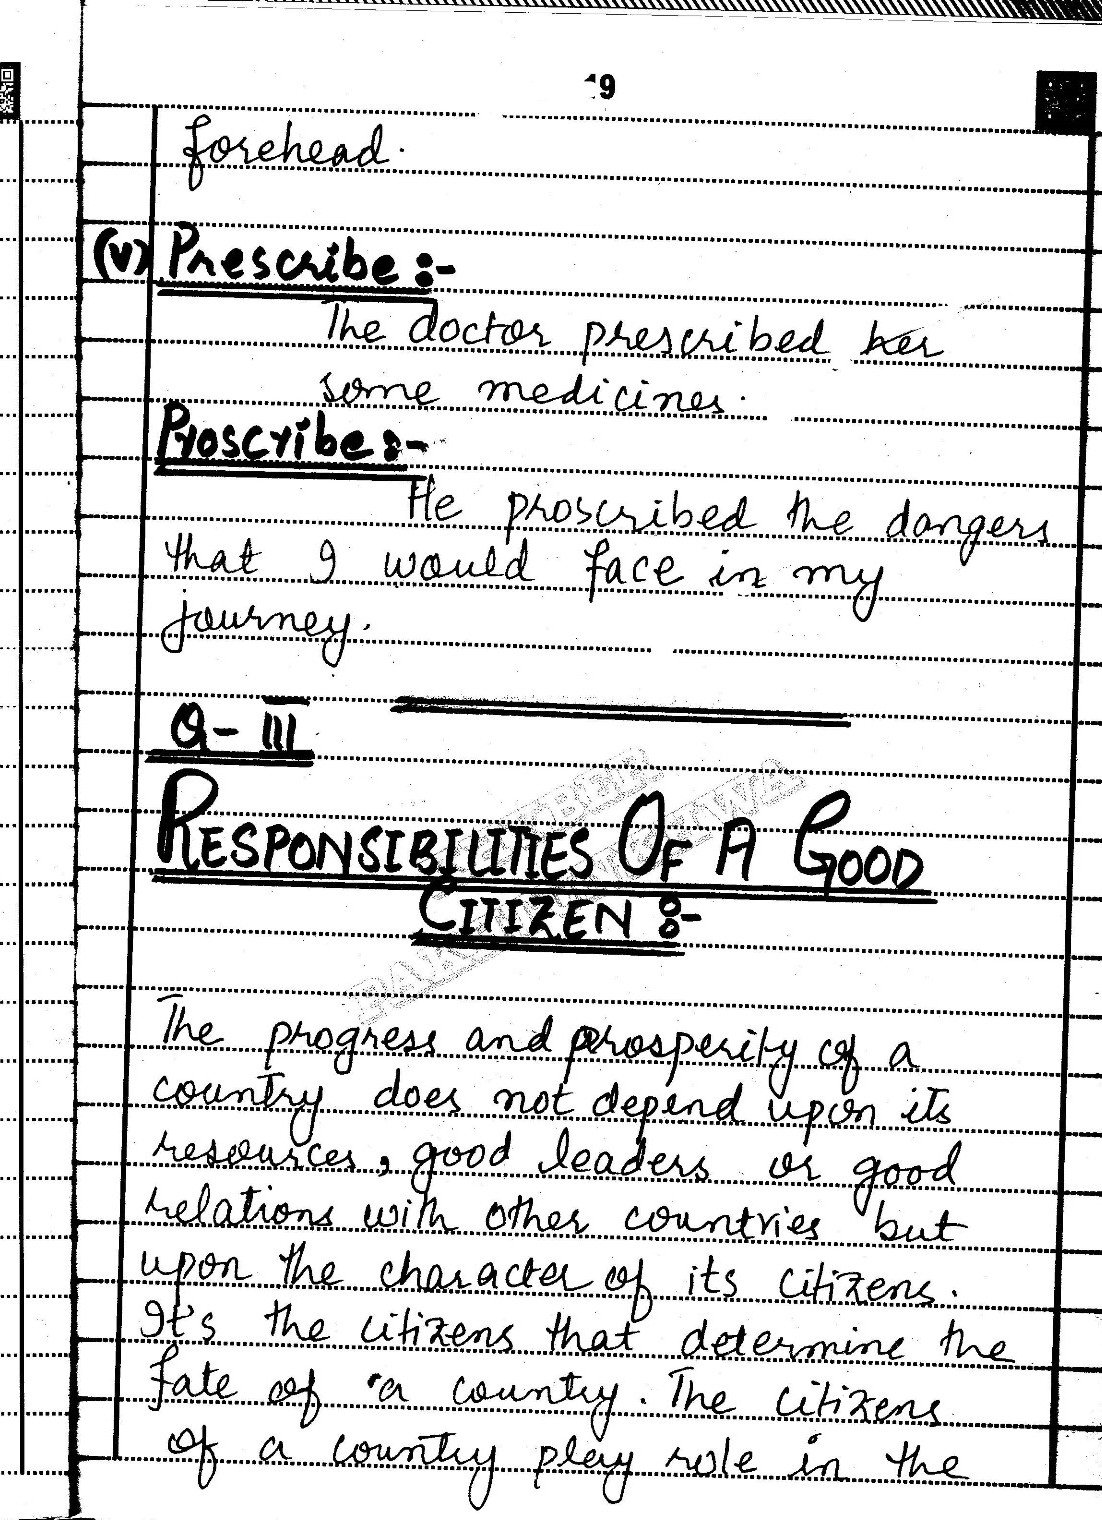 19
forehead.
(v) Prescribe :-
The doctor prescribed her
some medicines.
Proscribe :-
He proscribed the dangers
that I would face in my
journey.
Q- III
RESPONSIBILITIES OF A GOOD
CITIZEN :-
The progress and prosperity of a
country does not depend upon its
resources, good leaders or good
relations with other countries but
upon the character of its citizens.
It's the citizens that determine the
fate of a country. The citizens
of a country play role in the